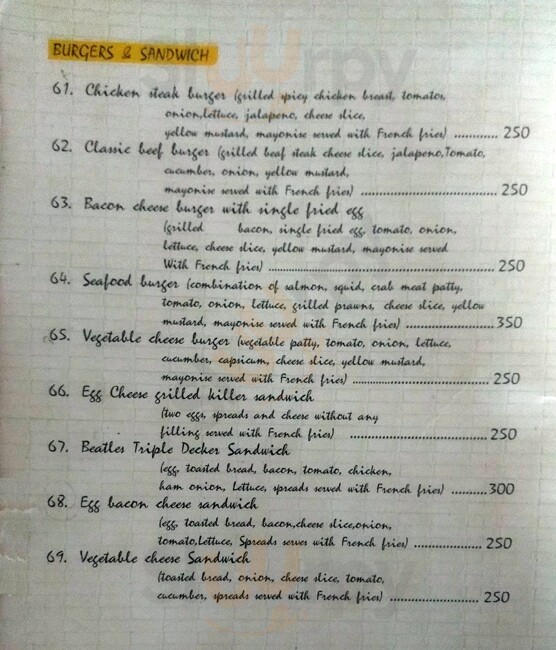 BURGERS & SANDWICH
61. Chicken steak burger (grilled spicy chicken breast, tomatos,
onion,lettuce, jalapeno, cheese slice,
yellow mustard, mayonise served with French fries) ............ 250
62. Classic beef burger (grilled beaf steak cheese slice, jalapeno,Tomato,
cucumber, onion, yellow mustard,
mayonise served with French fries) .................................... 250
63. Bacon cheese burger with single fried egg
(grilled bacon, single fried egg, tomato, onion,
lettuce, cheese slice, yellow mustard, mayonise served
With French fries) ............................................................ 250
64. Seafood burger (combination of salmon, squid, crab meat patty,
tomato, onion, lettuce, grilled prawns, cheese slice, yellow
mustard, mayonise served with French fries) ........................ 350
65. Vegetable cheese burger (vegetable patty, tomato, onion, lettuce,
cucumber, capsicum, cheese slice, yellow mustard,
mayonise served with French fries) .................................... 250
66. Egg Cheese grilled killer sandwich
(two eggs, spreads and cheese without any
filling served with French fries) .................................... 250
67. Beatles Triple Decker Sandwich
(egg, toasted bread, bacon, tomato, chicken,
ham onion, Lettuce, spreads served with French fries) .......... 300
68. Egg bacon cheese sandwich
(egg, toasted bread, bacon,cheese slice,onion,
tomato,Lettuce, Spreads serves with French fries) .................. 250
69. Vegetable cheese Sandwich
(toasted bread, onion, cheese slice, tomato,
cucumber, spreads served with French fries) ........................ 250